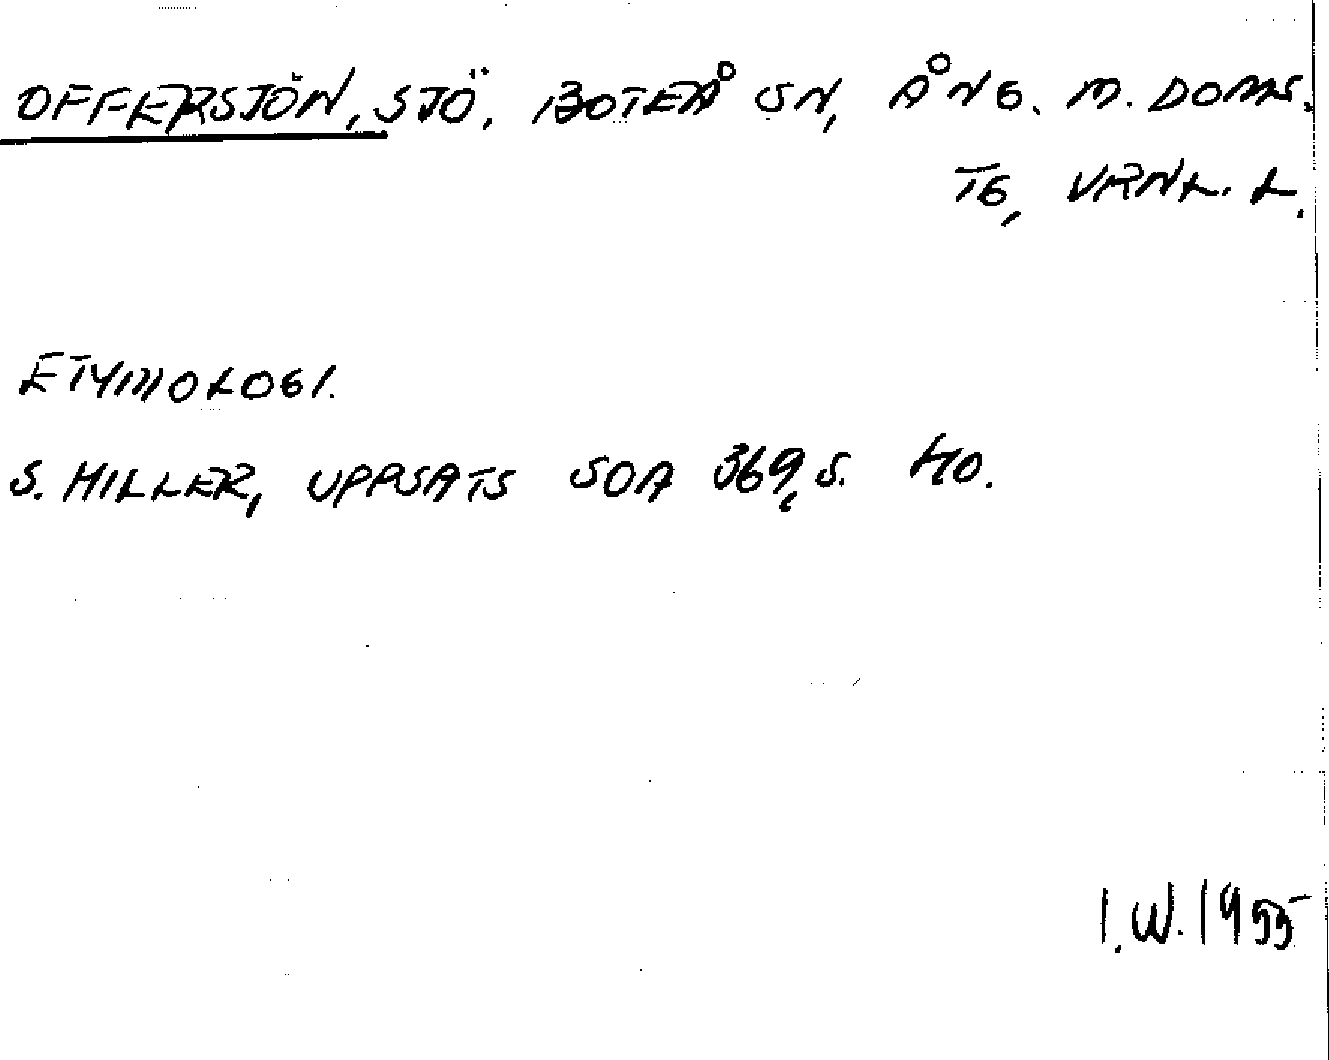 OFFERSJÖN, SJÖ. BOTEÅ SN, ÅNG. M. DOMS.
TG, VRNL. L.
ETYMOLOGI.
S. HILLER, UPPSATS SOA 369, S. 40.
I.W. 1955